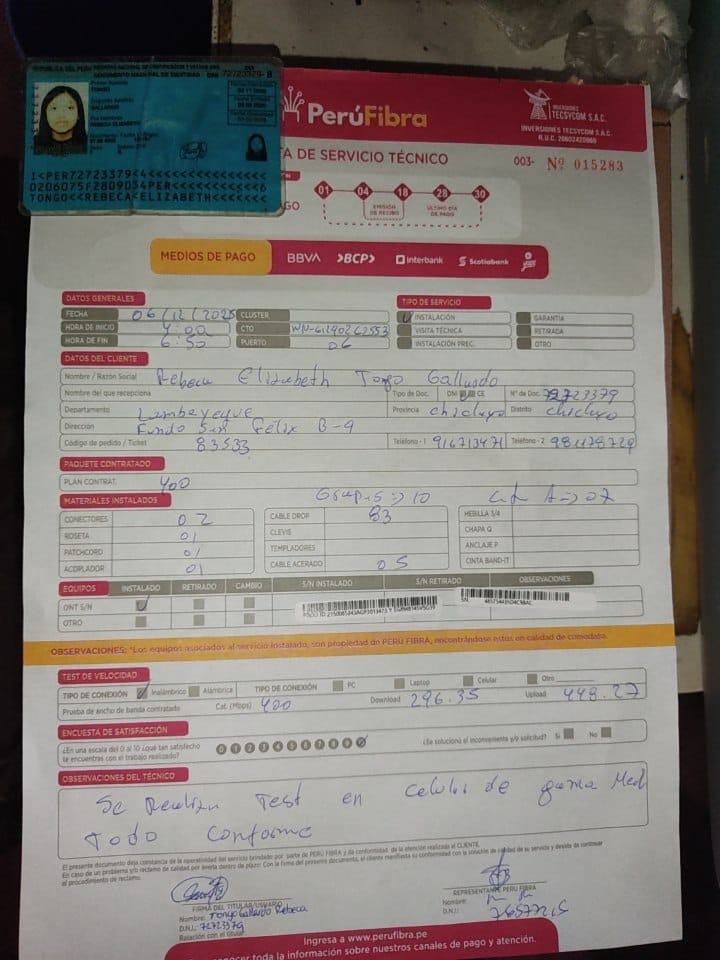 REPÚBLICA DEL PERÚ
DOCUMENTO NACIONAL DE IDENTIDAD
72723379
Primer Apellido
TONGO
Segundo Apellido
GALLARDO
Pre Nombres
REBECA ELIZABETH
I<PER72723379<4<<<<<<<<<<<<<<<
0206075F2809034PER<<<<<<<<<<<6
TONGO<<REBECA<ELIZABETH<<<<<<<
PerúFibra
INVERSIONES TECSYCOM S.A.C.
INVERSIONES TECSYCOM S.A.C.
R.U.C. 20602420869
TA DE SERVICIO TÉCNICO
003- Nº 015283
AGO
01 04 18 28 30
EMISIÓN DE RECIBO
ÚLTIMO DÍA DE PAGO
MEDIOS DE PAGO BBVA >BCP> Interbank Scotiabank yape
DATOS GENERALES TIPO DE SERVICIO
FECHA 06/12/2025 CLUSTER INSTALACIÓN GARANTIA
HORA DE INICIO 4:00 CTO VISITA TÉCNICA RETIRADA
HORA DE FIN 6:50 PUERTO 06 INSTALACIÓN PREC. OTRO
DATOS DEL CLIENTE
Nombre / Razón Social Rebeca Elizabeth Tongo Gallardo
Nombre del que recepciona Tipo de Doc. DNI CE Nº de Doc. 72723379
Departamento Lambayeque Provincia chiclayo Distrito chiclayo
Dirección Fundo San Felix B-9
Código de pedido / Ticket 83533 Teléfono - 1 916713471 Teléfono - 2 981178729
PAQUETE CONTRATADO
PLAN CONTRAT. 400
MATERIALES INSTALADOS
CONECTORES 02 CABLE DROP 83 HEBILLA 3/4
ROSETA 01 CLEVIS CHAPA Q
PATCHCORD 01 TEMPLADORES ANCLAJE P
ACOPLADOR 01 CABLE ACERADO 05 CINTA BAND-IT
EQUIPOS INSTALADO RETIRADO CAMBIO S/N INSTALADO S/N RETIRADO OBSERVACIONES
ONT S/N
OTRO
OBSERVACIONES: "Los equipos asociados al servicio instalado, son propiedad de PERÚ FIBRA, encontrándose estos en calidad de comodato.
TEST DE VELOCIDAD
TIPO DE CONEXIÓN Inalámbrico Alámbrica TIPO DE CONEXIÓN PC Laptop Celular Otro
Prueba de ancho de banda contratado Cat. (Mbps) 400 Download 296.35 Upload 448.27
ENCUESTA DE SATISFACCIÓN
¿En una escala del 0 al 10 ¿qué tan satisfecho te encuentras con el trabajo realizado? 0 1 2 3 4 5 6 7 8 9 ¿Se solucionó el inconveniente y/o solicitud? Si No
OBSERVACIONES DEL TÉCNICO
Se Realiza Test en celular de gama Med
Todo Conforme
El presente documento deja constancia de la operatividad del servicio brindado por parte de PERÚ FIBRA y da conformidad de la atención realizada al CLIENTE.
En caso de un problema y/o reclamo de calidad por avería dentro de plazo: Con la firma del presente documento, el cliente manifiesta su conformidad con la solución de calidad de su servicio y desiste de continuar
el procedimiento de reclamo.
FIRMA DEL TITULAR/USUARIO
Nombre: Tongo Gallardo Rebeca
D.N.I.: 72723379
Relación con el titular
REPRESENTANTE PERÚ FIBRA
Nombre:
D.N.I.: 76577215
Ingresa a www.perufibra.pe
conocer toda la información sobre nuestros canales de pago y atención.